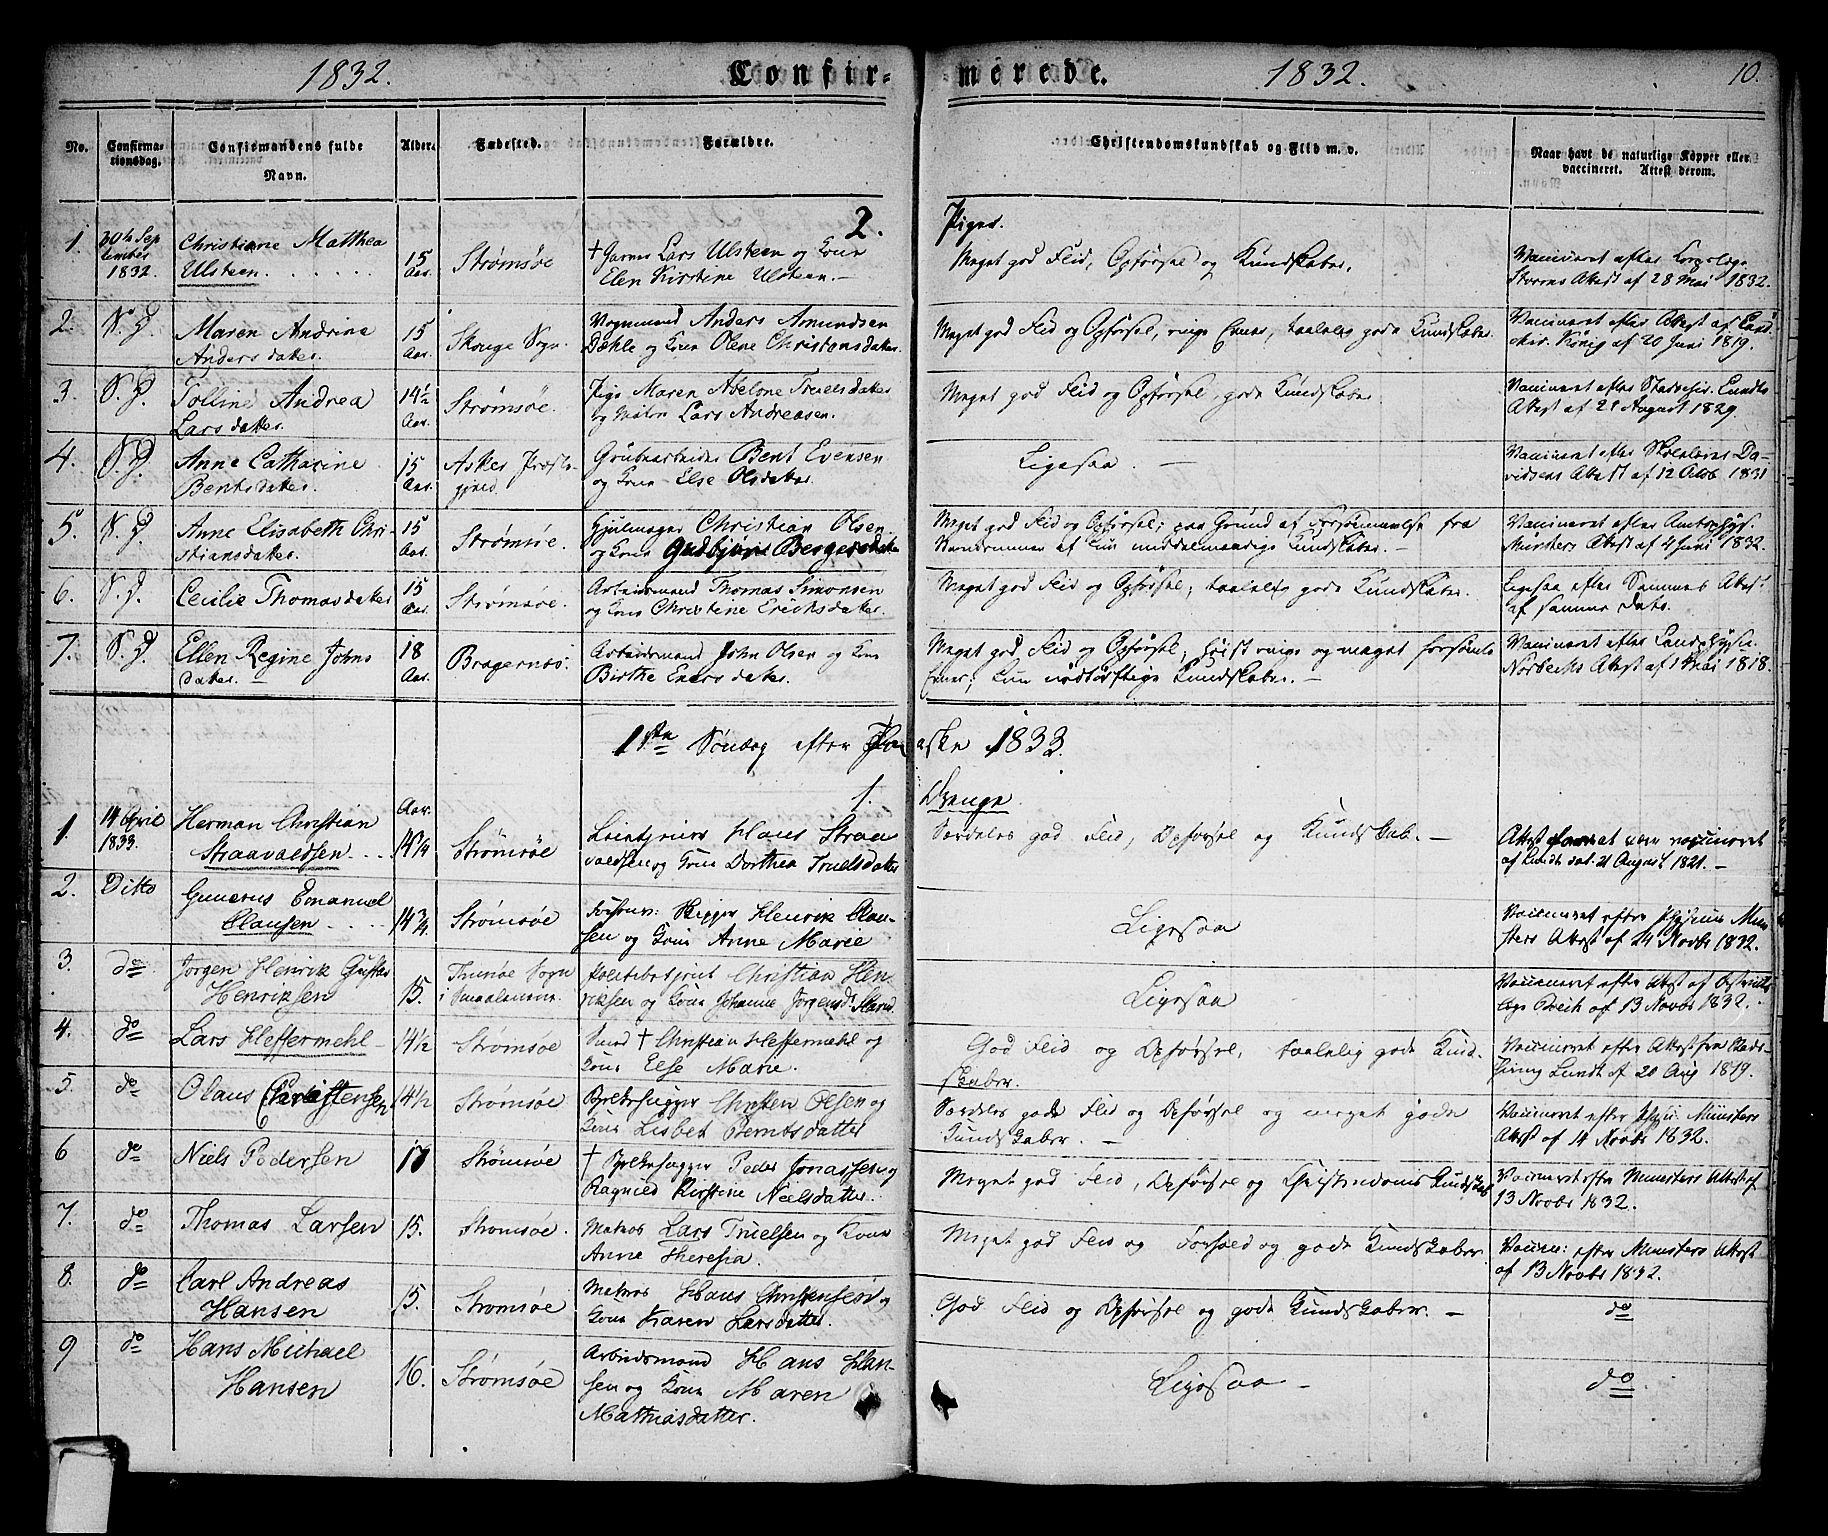 1832. Confir-
merede. 1832. 10.
No. Confirma-
tionsdag. Confirmandens fulde
Navn. Alder. Fødested. Forældre.
Christendomskundskab og Flid m. v. Naar havt de naturlige Kopper eller
vaccineret. Attest derom.
2. Piger.
1. 30te Sep
tember
1832. Christiane Matthea
Ulsteen. 15
Aar. Strømsøe
† Garver Lars Ulsteen og Kone
Elen Kirstine Ulsteen.
Meget god Flid, Opførsel og Kundskaber.
Vaccineret efter
Storms Attest af 28 Mai 1832.
2. S. D. Maren Andrine
Andersdatter. 15
Aar. Skouge Sogn.
Vognmand Anders Amundsen
Dæhle og Kone Olene Christensdatter.
Meget god Flid og Opførsel, ringe Evner, taalelig gode Kundskaber.
Vaccineret efter Attest af
König af 20 Juni 1819.
3. S. D. Tolline Andrea
Larsdatter. 14½
Aar. Strømsøe.
Pige Maren Abelone Truelsdatter
og Lars Andreasen.
Meget god Flid og Opførsel, gode Kundskaber.
Vaccineret efter Lundts
Attest af 21 August 1829.
4. S. D. Anne Catharine
Bentsdatter. 15
Aar. Asker Præste-
gjeld.
Grubearbeider Bent Evensen
og Kone Else Olsdatter
Ligesaa.
Vaccineret efter Skolelærer Da-
vidsens Attest af 12 Octob 1831
5. S. D. Anne Elisabeth Chri-
stiansdatter. 15
Aar. Strømsøe.
Hjulmager Christian Olsen
og Kone Gudbjør Bergersdatter
Meget god Flid og Opførsel; paa Grund af Forsømmelse fra
Barndommen af kun middelmaadige Kundskaber.
Vaccineret efter Amtsphys.
Münsters Attest af 4 Juni 1832.
6. S. D. Cecilie Thomasdatter 15
Aar. Strømsøe.
Arbeidsmand Thomas Simonsen
og Kone Christine Ericksdatter.
Meget god Flid og Opførsel; taalelig gode Kundskaber.
Ligesaa efter Sammes Attest
af samme Dato.
7. S. D. Ellen Regine Johns
datter. 18
Aar. Bragernæs.
Arbeidsmand John Olsen og Kone
Birthe Enersdatter.
Meget god Flid og Opførsel; høist ringe og meget forsømte
Evner; kun nødtørftige Kundskaber.
Vaccineret efter Landphysic.
Norbechs Attest af 1 Mai 1818.
1ste Søndag efter Paaske 1833.
1. Drenge.
1. 14 April
1833. Herman Christian
Straavaldsen Aar.
14¼ Strømsøe
Hans Straa
valdsen og Kone Dorthea Truelsdatter
Særdeles god Flid, Opførsel og Kundskab.
Attest været vaccineret
af Lundt dat. 21 August 1821.
2. Ditto Gunerus Emanuel
Clausen 14¾ Strømsøe
Skipper Henrik Clau-
sen og Kone Anne Marie
Ligesaa
Vaccineret efter Physicus Mün
sters Attest af 24 Novbr 1832.
3. do Jørgen Henrik Gustav
Henriksen 15. Thunøe Sogn
i Smaalenene.
Politibetjent Christian Hen-
riksen og Kone Johanne Jørgensd.
Ligesaa
Vaccineret efter Attest af
af 13 Novbr 1832.
4. do Lars Heffermehl 14½ Strømsøe
Smed † Christian Heffermehl og
Kone Else Marie.
God Flid og Opførsel, taalelig gode Kund-
skaber.
Vaccineret efter Attest fra Stads-
Lundt af 20 Aug 1819.
5. do Olaus Christensen 14½ Strømsøe
Christen Olsen og
Kone Lisbet Berntsdatter
Særdeles gode Flid og Opførsel og meget gode
Kundskaber.
Vaccineret efter Phys. Münsters
Attest af 14 Novbr 1832.
6 do Niels Pedersen 17 Strømsøe
† Peder Jonassen og
Ragnild Kirstine Neilsdatter.
Meget god Flid, Opførsel og Christendoms Kundskab
Vaccineret efter Münsters Attest af
13 Novbr 1832.
7. do Thomas Larsen 15. Strømsøe.
Matros Lars Truelsen og Kone
Anne Theresia.
Meget god Flid og Forhold og gode Kundskaber.
Vaccin: efter Münsters Attest
af 13 Novbr 1832.
8. do Carl Andreas
Hansen 15. Strømsøe
Matros Hans Christensen og
Kone Karen Larsdatter.
God Flid og Opførsel og gode Kundskaber.
do
9 do Hans Michael
Hansen 16. Strømsøe
Arbeidsmand Hans Han-
sen og Kone Maren
Mathiasdatter.
Ligesaa
do